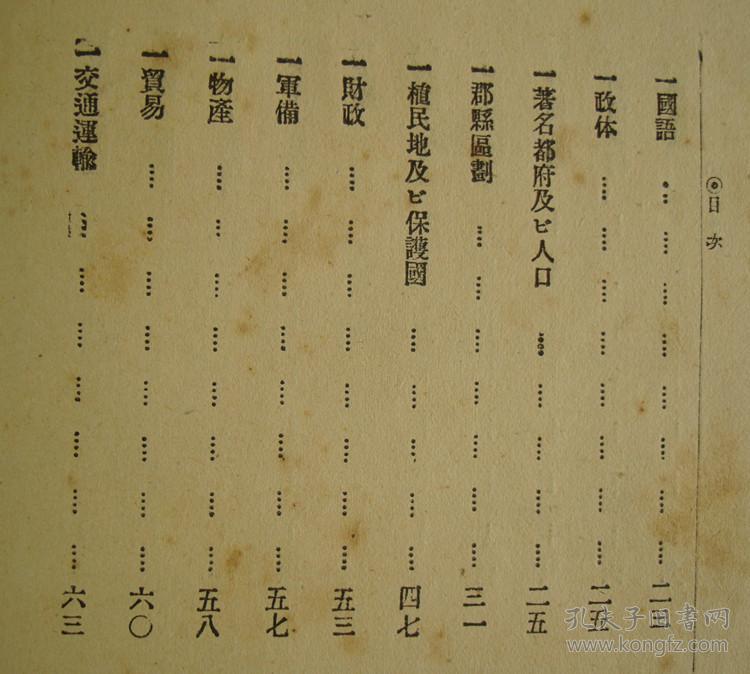 ◎目次
一國語 二四
一政体 二五
一著名都府及ビ人口 二五
一郡縣區劃 三一
一植民地及ビ保護國 四七
一財政 五三
一軍備 五七
一物產 五八
一貿易 六〇
一交通運輸 六三
孔夫子旧书网
www.kongfz.com